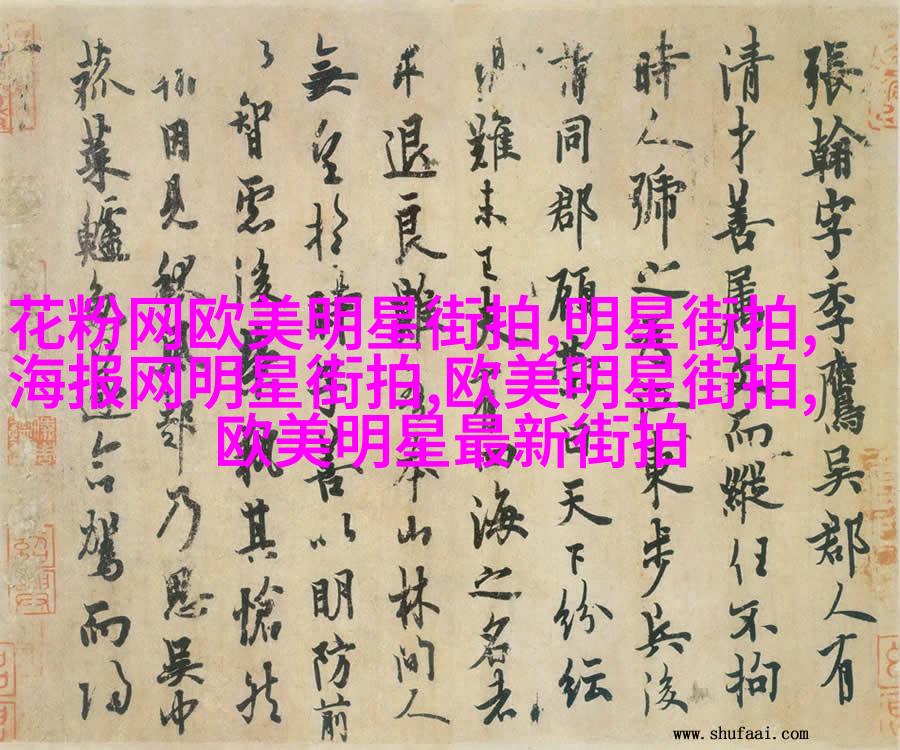 張翰字季鷹吳郡人有
清才善屬文而縱任不拘
時人號之為江東步兵後
同郡顧榮曰天下紛紜
難未已夫有四海之名者
求退良難吾本山林間人
無望於時子善以明防前
智慮後榮執其愴然
翰因見秋風起乃思吳中
菰菜鱸魚遂命駕而歸
花粉网欧美明星街拍,明星街拍,
海报网明星街拍,欧美明星街拍,
欧美明星最新街拍
www.shufaai.com